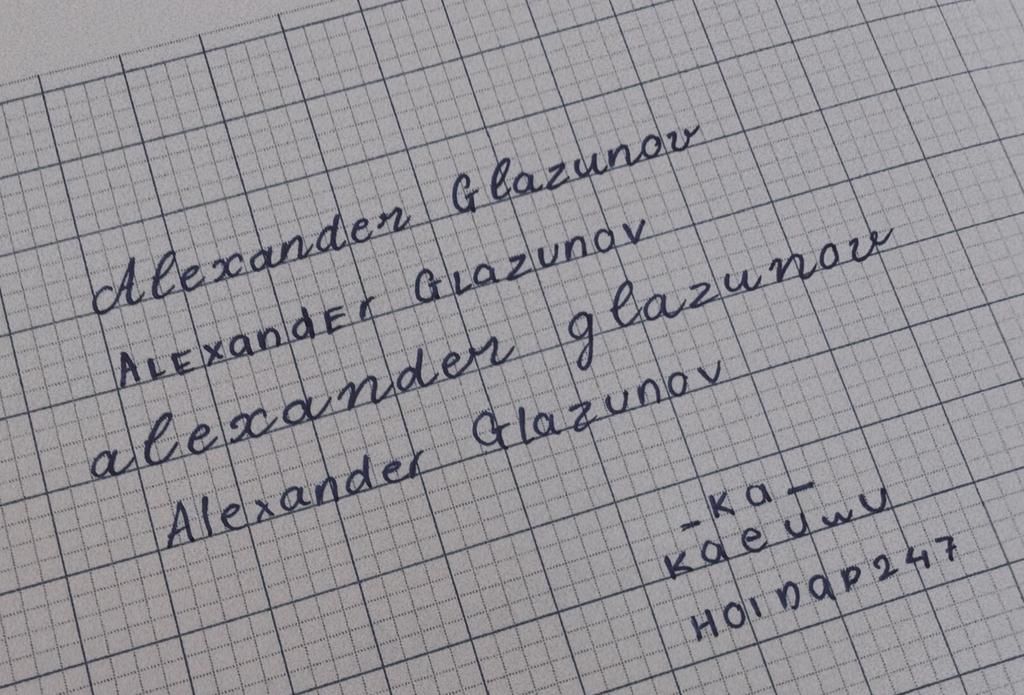 Alexander Glazunov
ALExandEr GLazunov
alexander glazunov
Alexander Glazunov
-Ka-